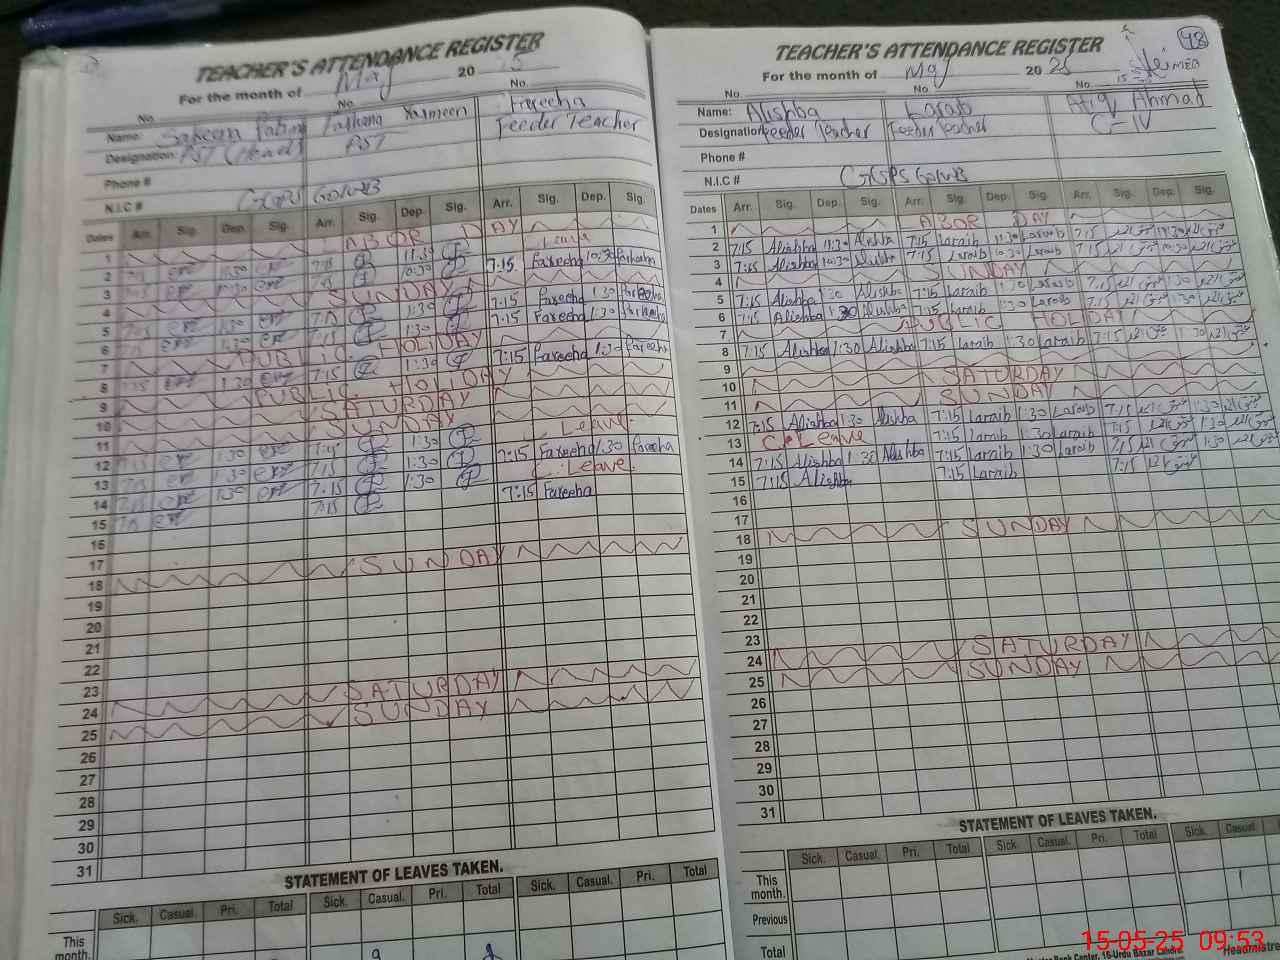 TEACHER'S ATTENDANCE REGISTER
For the month of May 20 25
No. No. No.
Name: Yasmeen Fareeha
Designation: PST (Head) PST Feeder Teacher
Phone #
N.I.C # GGPS
Dates Arr. Sig. Dep. Sig. Arr. Sig. Dep. Sig. Arr. Sig. Dep. Sig.
1 LABOR DAY
2 7:15 11:30 Leave
3 7:15 10:30 7:15 Fareeha 10:30 Fareeha
4 SUNDAY
5 7:15 1:30 7:15 1:30 7:15 Fareeha 1:30 Fareeha
6 7:15 1:30 7:15 1:30 7:15 Fareeha 1:30 Fareeha
7 PUBLIC HOLIDAY
8 7:15 1:30 7:15 1:30 7:15 Fareeha 1:30 Fareeha
9 PUBLIC HOLIDAY
10 SATURDAY
11 SUNDAY
12 7:15 1:30 7:15 1:30 Leave
13 7:15 1:30 7:15 1:30 7:15 Fareeha 1:30 Fareeha
14 7:15 1:30 7:15 1:30 C. Leave
15 7:15 7:15 7:15 Fareeha
16
17
18 SUNDAY
19
20
21
22
23
24 SATURDAY
25 SUNDAY
26
27
28
29
30
31
STATEMENT OF LEAVES TAKEN.
Sick. Casual. Pri. Total Sick. Casual. Pri. Total Sick. Casual. Pri. Total
This month.
48
TEACHER'S ATTENDANCE REGISTER
For the month of May 20 25
No. No. No.
Name: Alishba Laraib Atiq Ahmad
Designation Feeder Teacher Feeder Teacher C-IV
Phone #
N.I.C # GGPS
Dates Arr. Sig. Dep. Sig. Arr. Sig. Dep. Sig. Arr. Sig. Dep. Sig.
1 LABOR DAY
2 7:15 Alishba 11:30 Alishba 7:15 Laraib 11:30 Laraib 7:15 11:30
3 7:15 Alishba 10:30 Alishba 7:15 Laraib 10:30 Laraib 7:15 10:30
4 SUNDAY
5 7:15 Alishba 1:30 Alishba 7:15 Laraib 1:30 Laraib 7:15 1:30
6 7:15 Alishba 1:30 Alishba 7:15 Laraib 1:30 Laraib 7:15 1:30
7 PUBLIC HOLIDAY
8 7:15 Alishba 1:30 Alishba 7:15 Laraib 1:30 Laraib 7:15 1:30
9
10 SATURDAY
11 SUNDAY
12 7:15 Alishba 1:30 Alishba 7:15 Laraib 1:30 Laraib 7:15 1:30
13 C. Leave 7:15 Laraib 1:30 Laraib 7:15 1:30
14 7:15 Alishba 1:30 Alishba 7:15 Laraib 1:30 Laraib 7:15 1:30
15 7:15 Alishba 7:15 Laraib 7:15
16
17
18 SUNDAY
19
20
21
22
23
24 SATURDAY
25 SUNDAY
26
27
28
29
30
31
STATEMENT OF LEAVES TAKEN.
Sick. Casual. Pri. Total Sick. Casual. Pri. Total Sick. Casual
This month.
Previous
Total
15-05-25 09:53